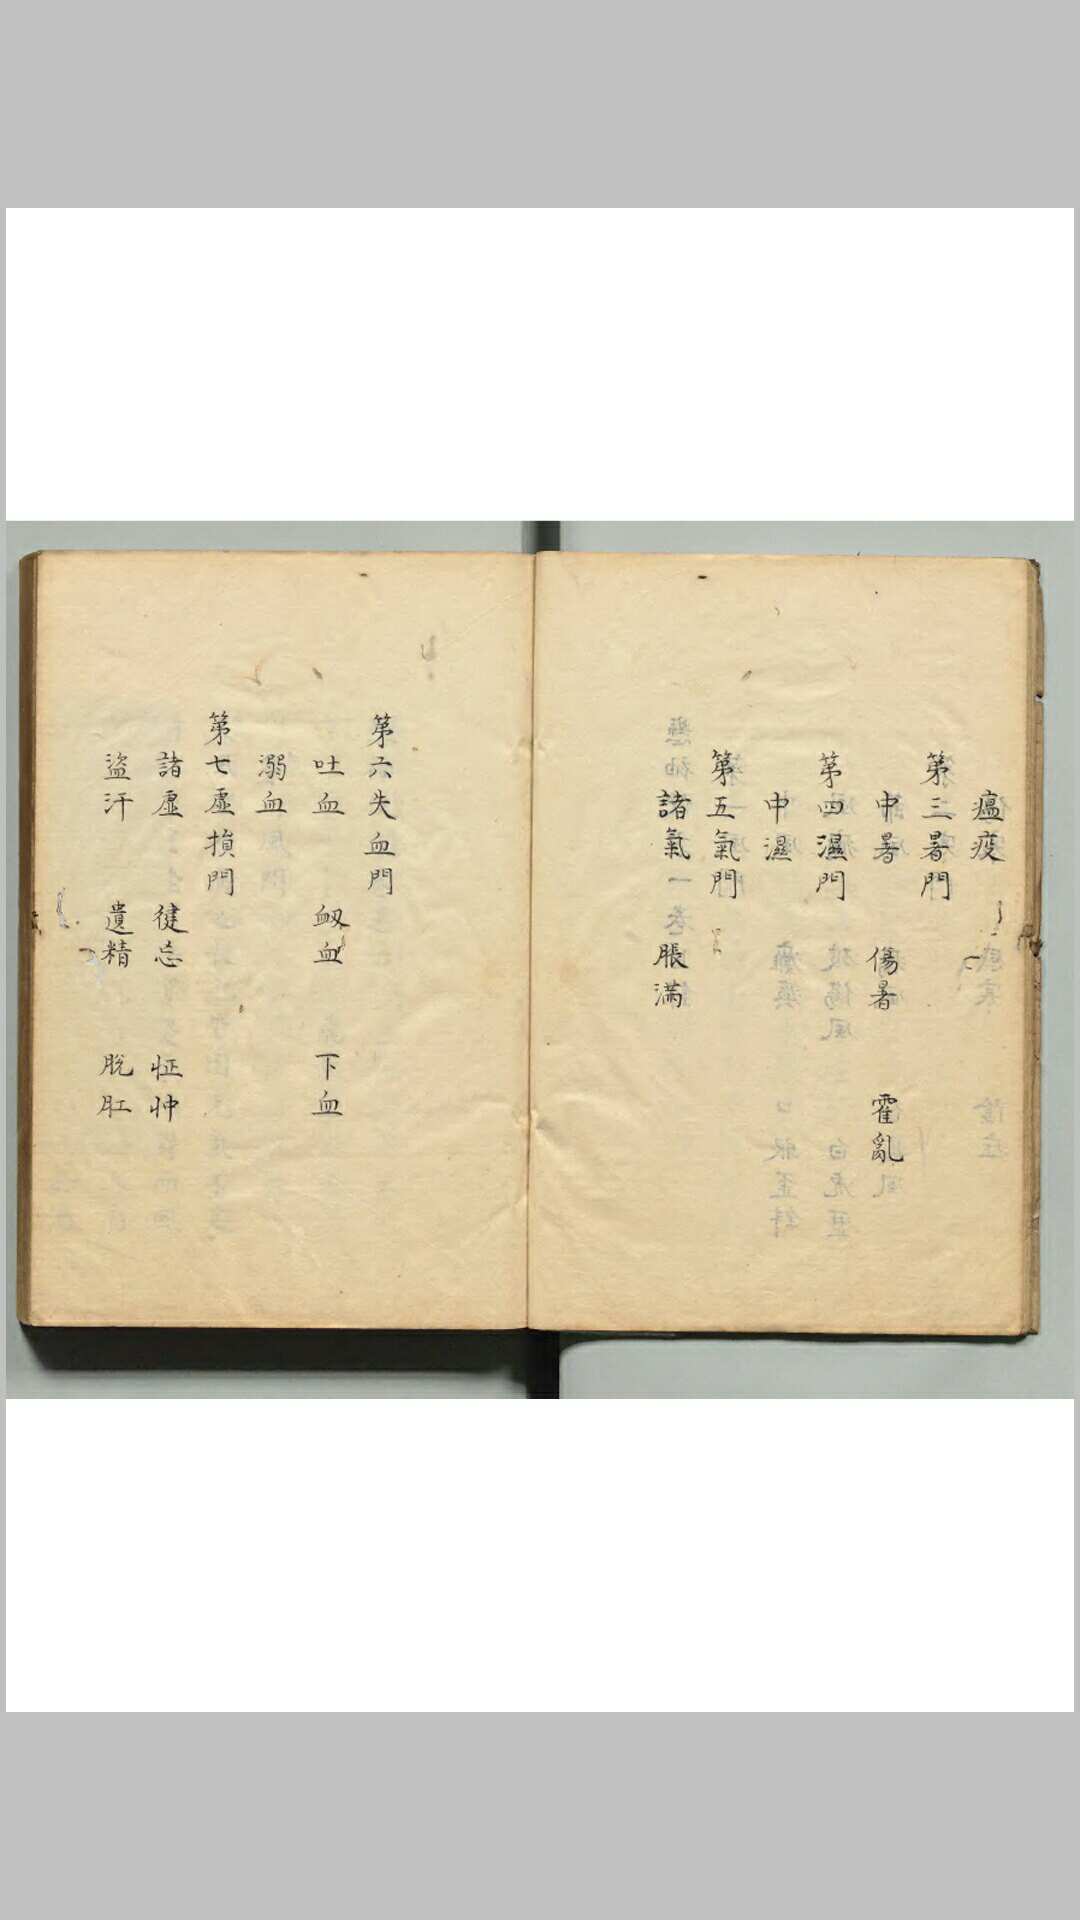 瘟疫
第三暑門
中暑 傷暑 霍亂
第四濕門
中濕
第五氣門
諸氣 脹滿
第六失血門
吐血 衂血 下血
溺血
第七虛損門
諸虛 健忘 怔忡
盜汗 遺精 脫肛